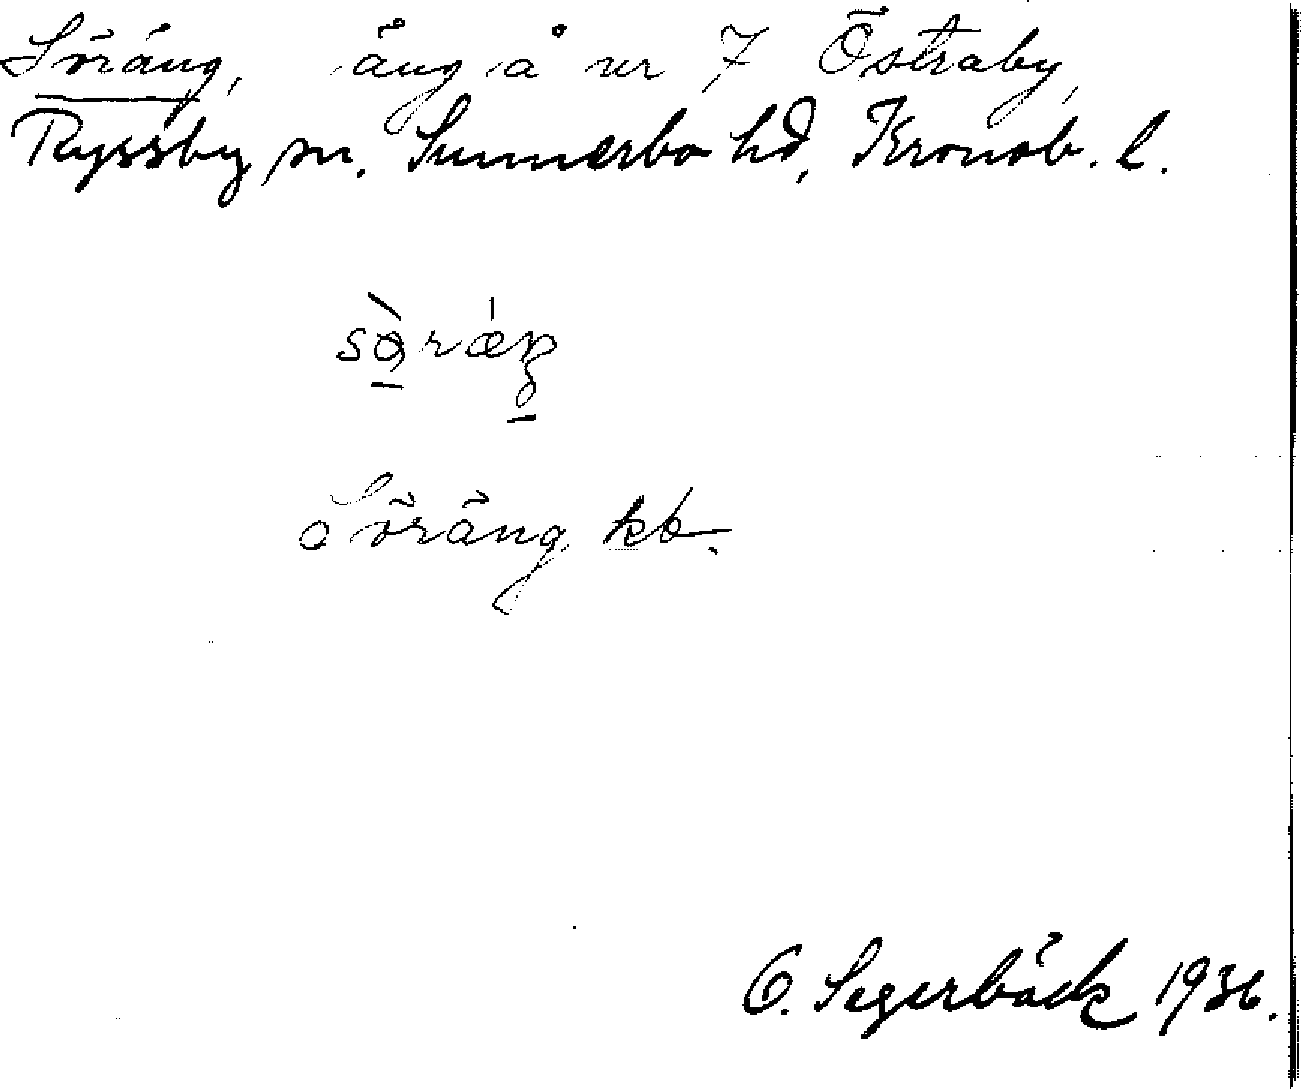 Söräng, äng å nr 7 Östraby,
Ryssby sn. Sunnerbo hd, Kronob. l.
Söräng kb.
O. Segerbäck 1936.